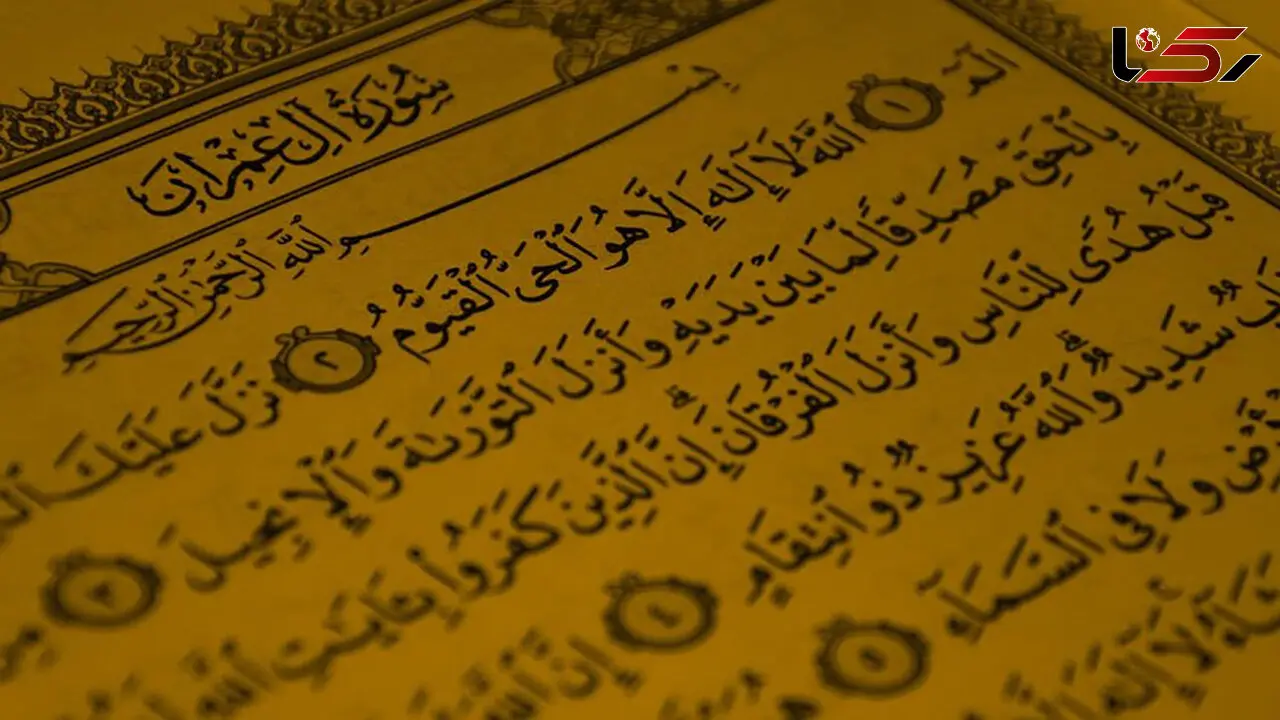 رکنا
سُورَةُ آلِ عِمْرَانَ
بِسْمِ ٱللَّهِ ٱلرَّحْمَٰنِ ٱلرَّحِيمِ
الٓمٓ ١ ٱللَّهُ لَآ إِلَٰهَ إِلَّا هُوَ ٱلْحَىُّ ٱلْقَيُّومُ ٢ نَزَّلَ عَلَيْكَ
بِٱلْحَقِّ مُصَدِّقًا لِّمَا بَيْنَ يَدَيْهِ وَأَنزَلَ ٱلتَّوْرَىٰةَ وَٱلْإِنجِيلَ ٣ مِن
قَبْلُ هُدًى لِّلنَّاسِ وَأَنزَلَ ٱلْفُرْقَانَ ۗ إِنَّ ٱلَّذِينَ كَفَرُوا۟ بِـَٔايَٰتِ ٱللَّهِ
شَدِيدٌ ۗ وَٱللَّهُ عَزِيزٌ ذُو ٱنتِقَامٍ ٤ إِنَّ ٱللَّهَ
وَلَا فِى ٱلسَّمَآءِ ٥ هُوَ
لَآ إِلَٰهَ إِلَّا